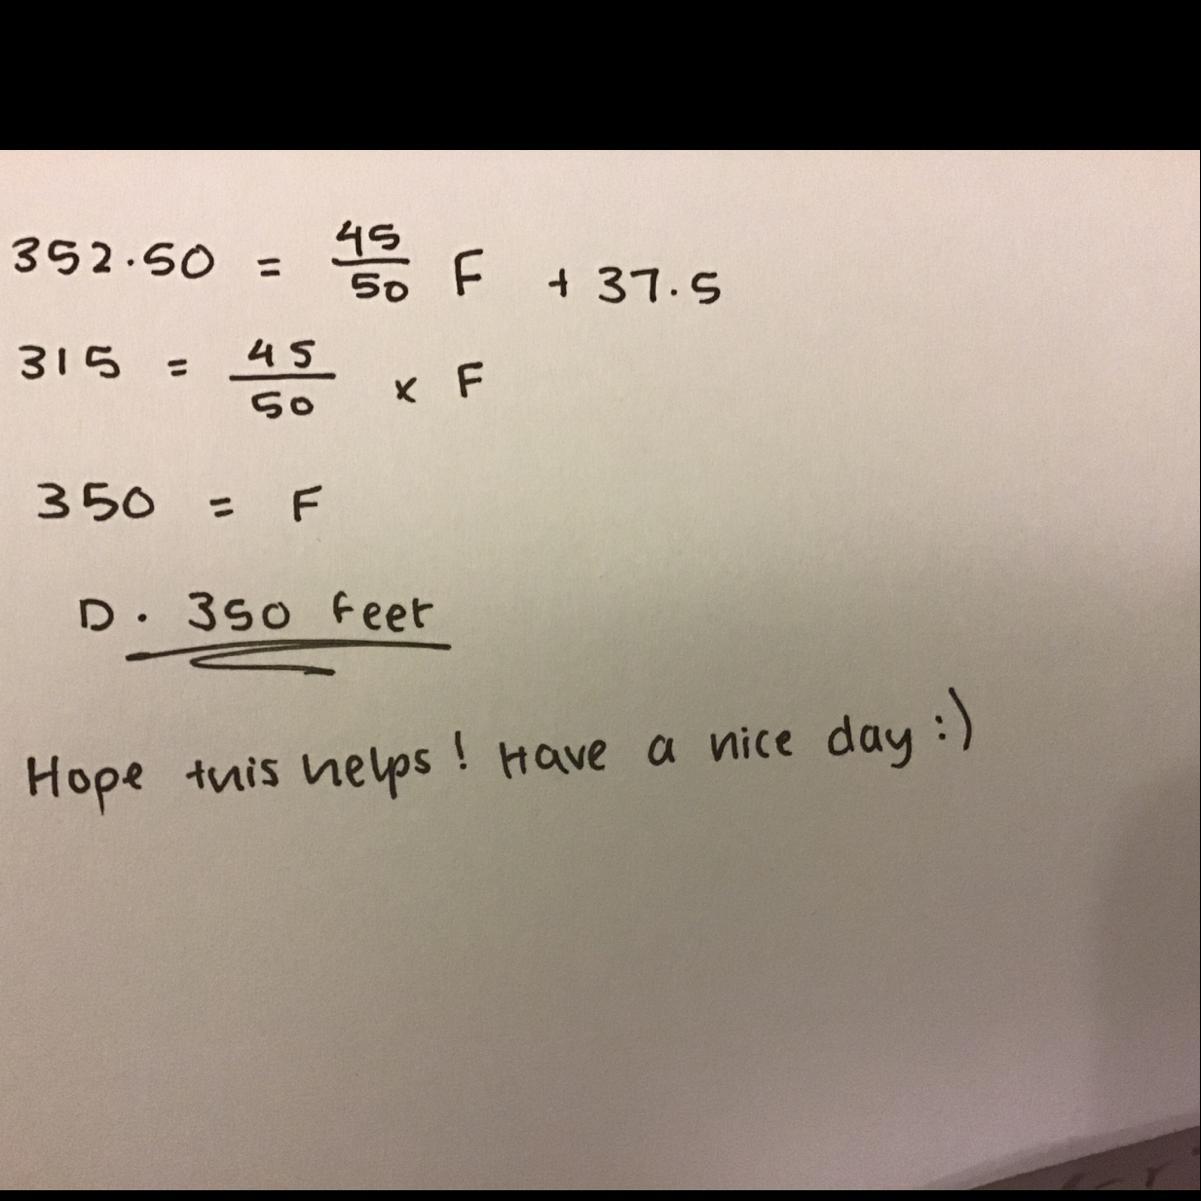 352.50 = 45/50 F + 37.5
315 = 45/50 x F
350 = F
D. 350 feet
Hope this helps! Have a nice day :)